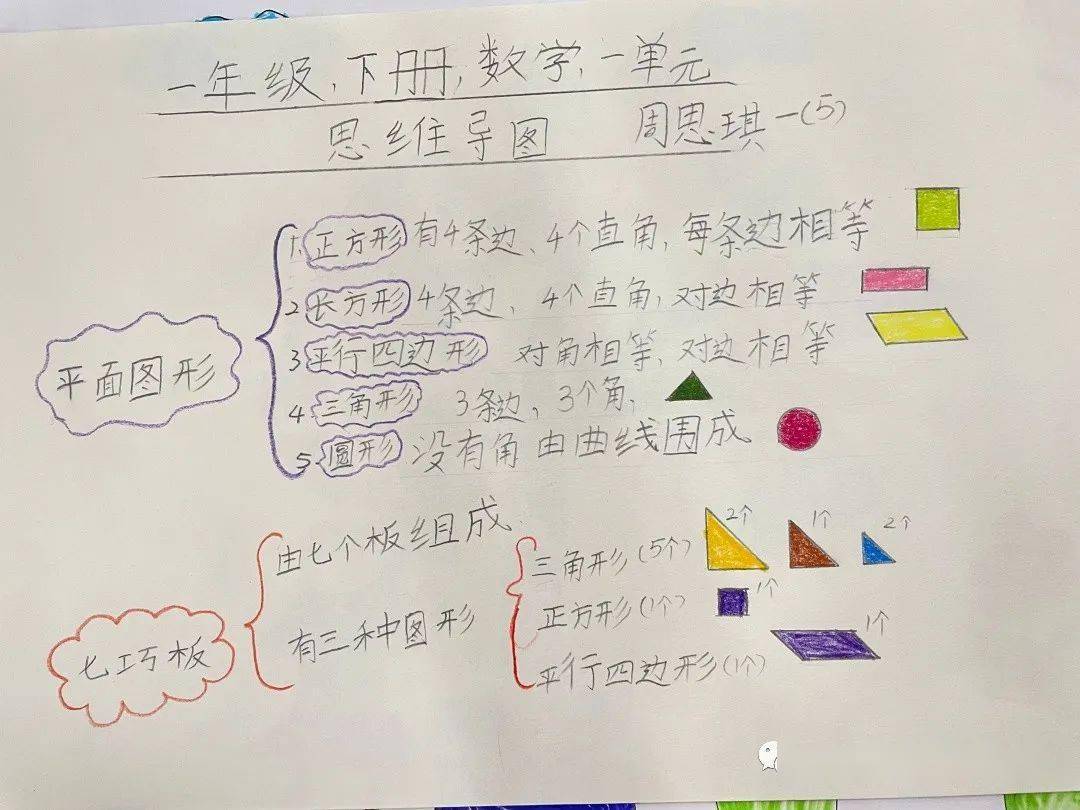 一年级,下册,数学,一单元
思维导图 周思琪一(5)
平面图形
1.正方形 有4条边、4个直角,每条边相等
2 长方形 4条边、4个直角,对边相等
3 平行四边形 对角相等,对边相等
4.三角形 3条边、3个角,
5.圆形 没有角由曲线围成
七巧板
由七个板组成
有三种图形
三角形(5个) 2个 1个 2个
正方形(1个) 1个
平行四边形(1个) 1个